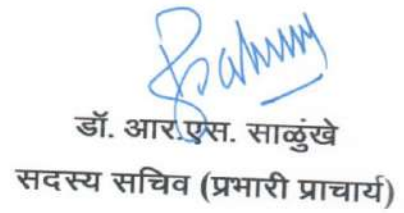 डॉ. आर.एस. साळुंखे
सदस्य सचिव (प्रभारी प्राचार्य)